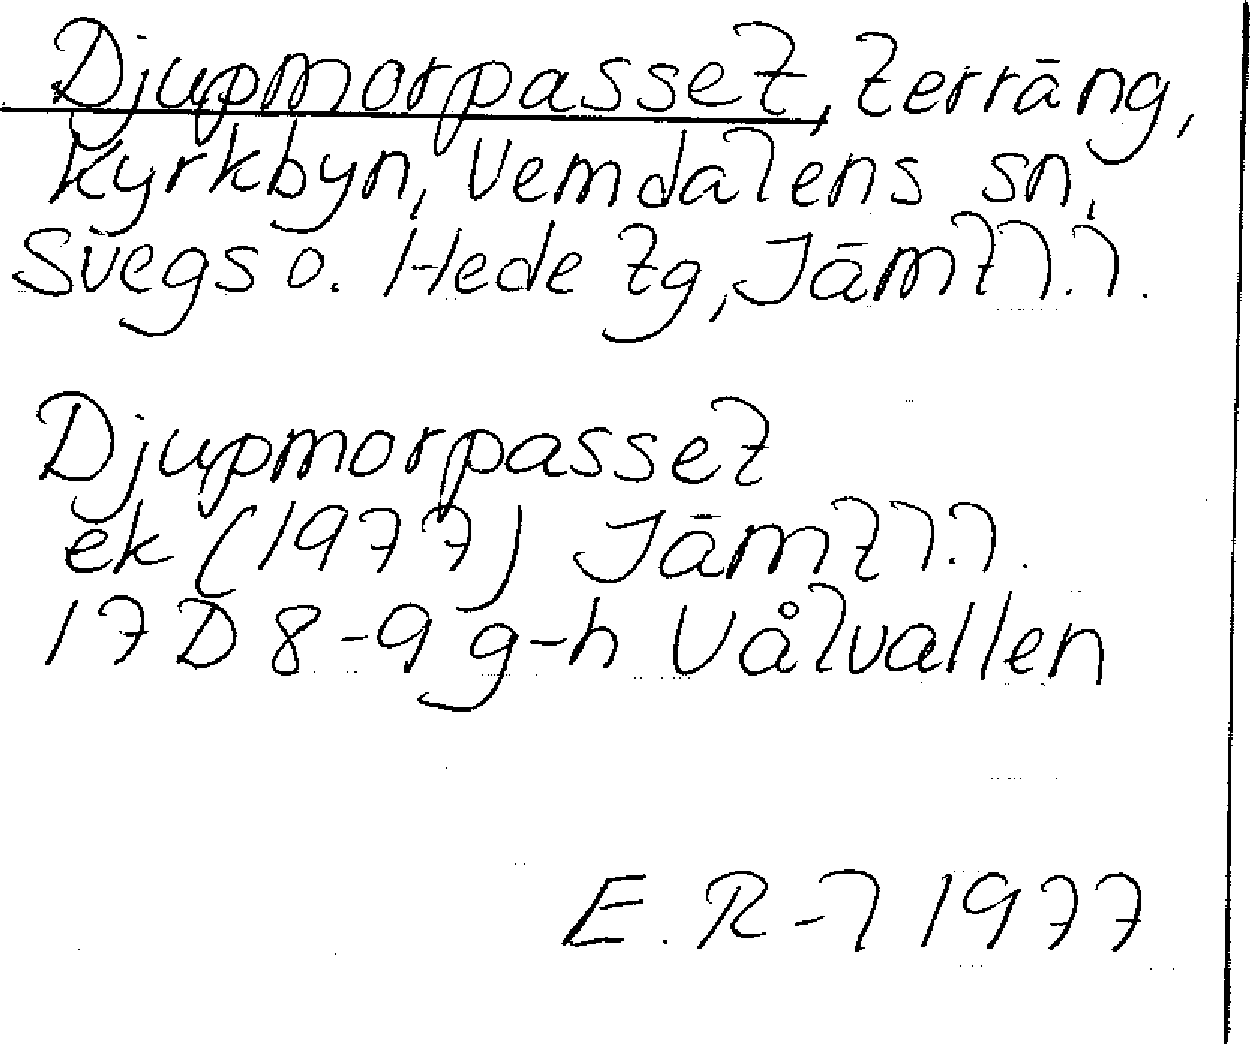 Djupmorpasset, terräng,
Kyrkbyn, Vemdalens sn,
Svegs o. Hede tg, Jämtl.l.
Djupmorpasset
ek (1977) Jämtl.l.
17D 8-9 g-h Vålvallen
E. R-l 1977